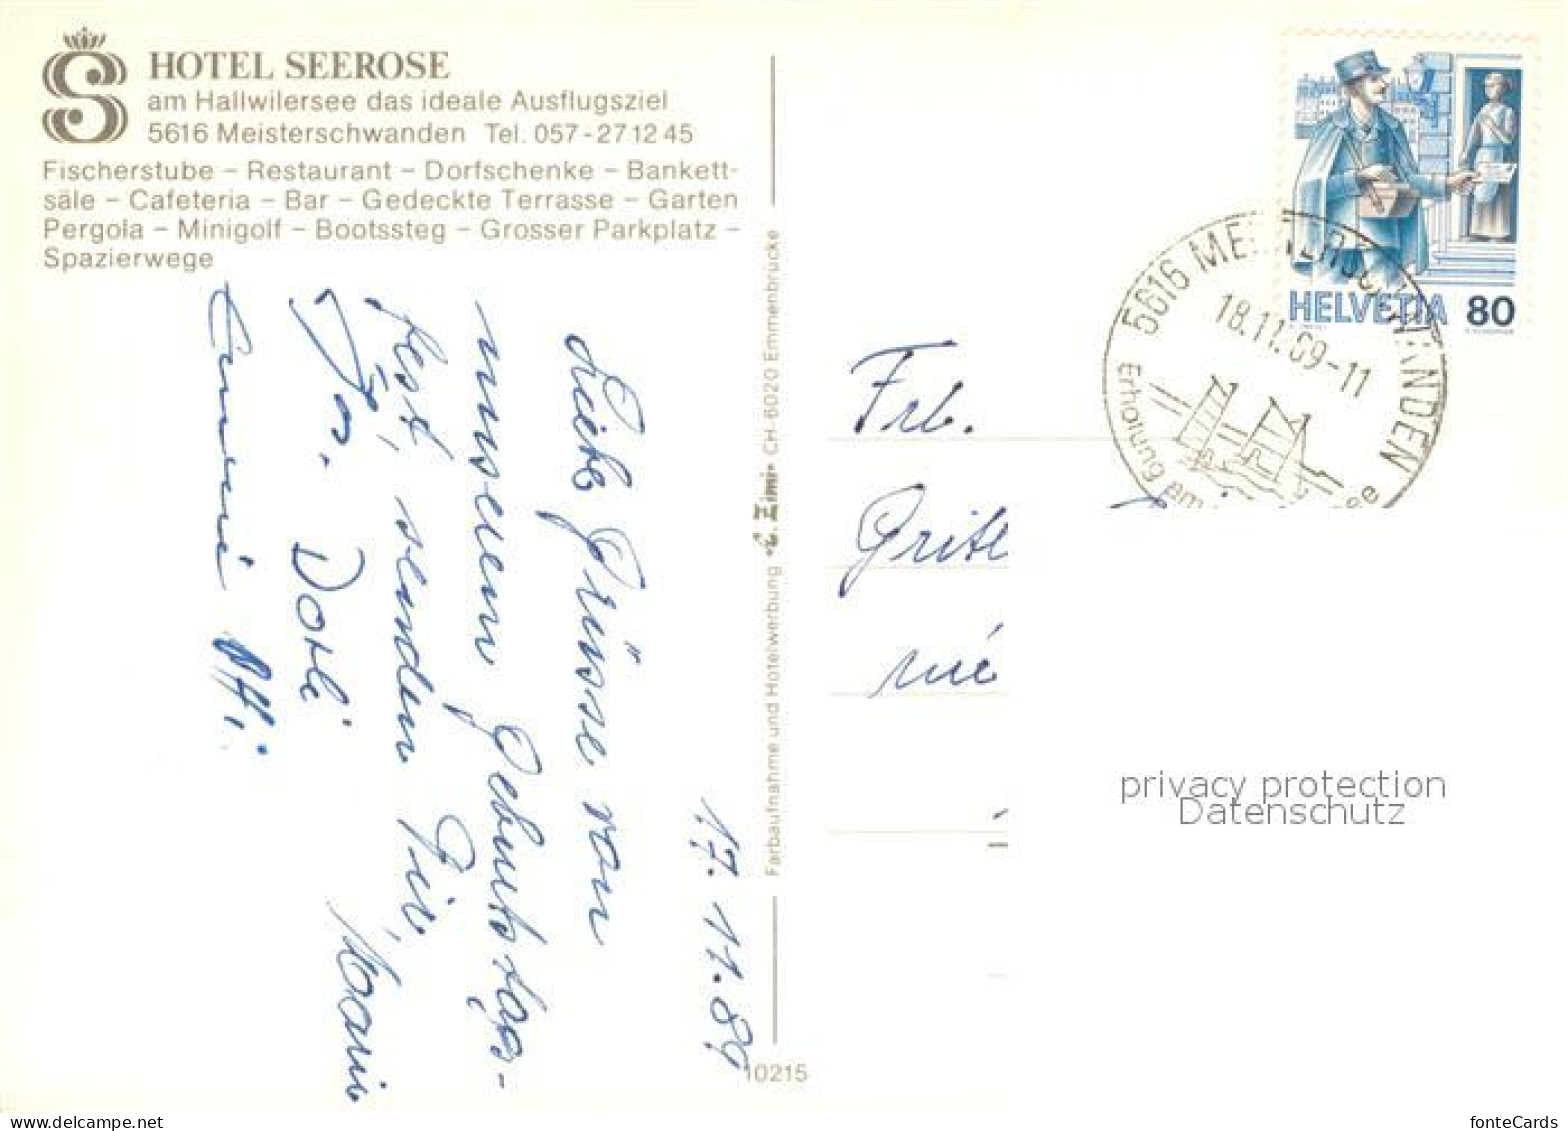 HOTEL SEEROSE
am Hallwilersee das ideale Ausflugsziel
5616 Meisterschwanden Tel. 057-27 12 45
Fischerstube – Restaurant – Dorfschenke – Bankett-
säle – Cafeteria – Bar – Gedeckte Terrasse – Garten
Pergola – Minigolf – Bootssteg – Grosser Parkplatz –
Spazierwege
17. 11. 89
Liebe Grüsse von
unserem Geburtstags-
fest, senden Dir,
Dorli
Farbaufnahme und Hotelwerbung C. Zimi CH-6020 Emmenbrücke
10215
HELVETIA 80
5616 MEISTERSCHWANDEN
18.11.89-11
Erholung am
Frb.
privacy protection
Datenschutz
www.delcampe.net
fonteCards